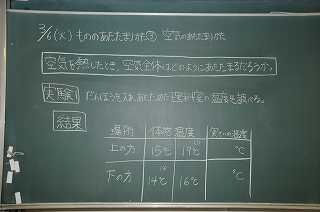 3/6(火) もののあたたまりかた③ 空気のあたたまりかた
空気を熱したとき、空気全体はどのようにあたたまるだろうか。
実験1 だんぼうを入れ、あたためた理科室の温度を調べる。
結果
場所 体感温度 実さいの温度
上の方 15℃ 19℃ ℃
下の方 14℃ 16℃ ℃